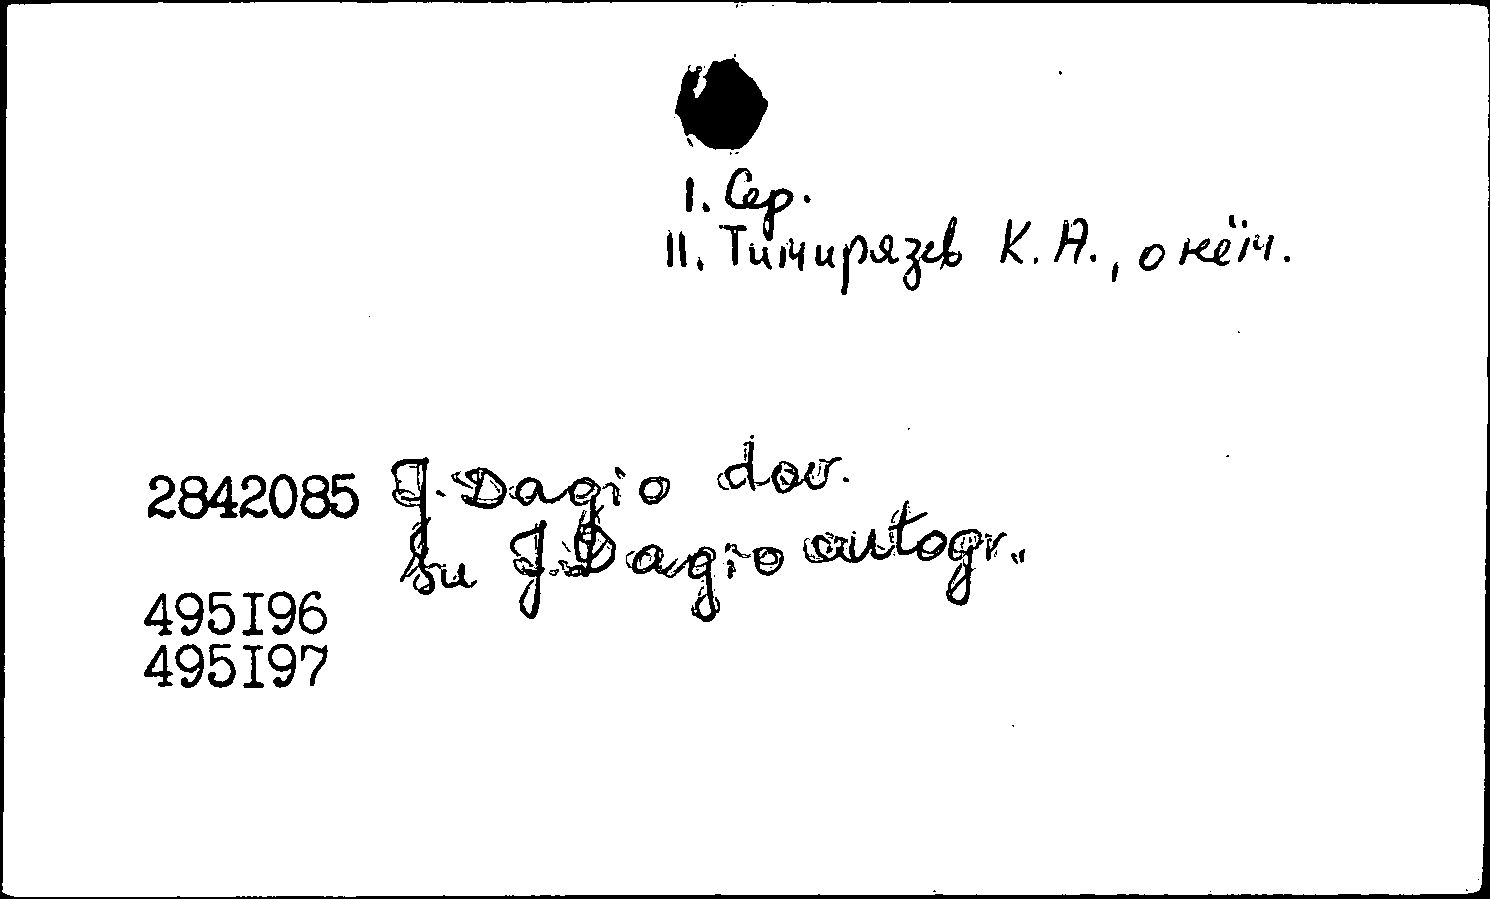 I. Сер.
II. Тимирязев К.А., о нём.
2842085 J. Dagio dov.
su J. Dagio autogr.
495I96
495I97